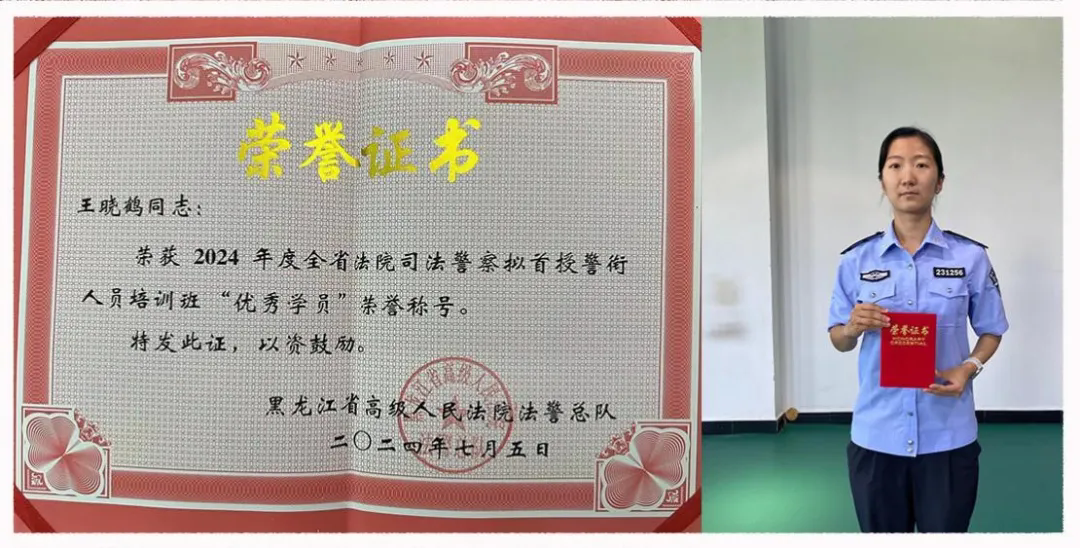 荣誉证书
王晓鹤同志：
荣获 2024 年度全省法院司法警察拟首授警衔
人员培训班“优秀学员”荣誉称号。
特发此证，以资鼓励。
黑龙江省高级人民法院法警总队
二〇二四年七月五日
231256
荣誉证书